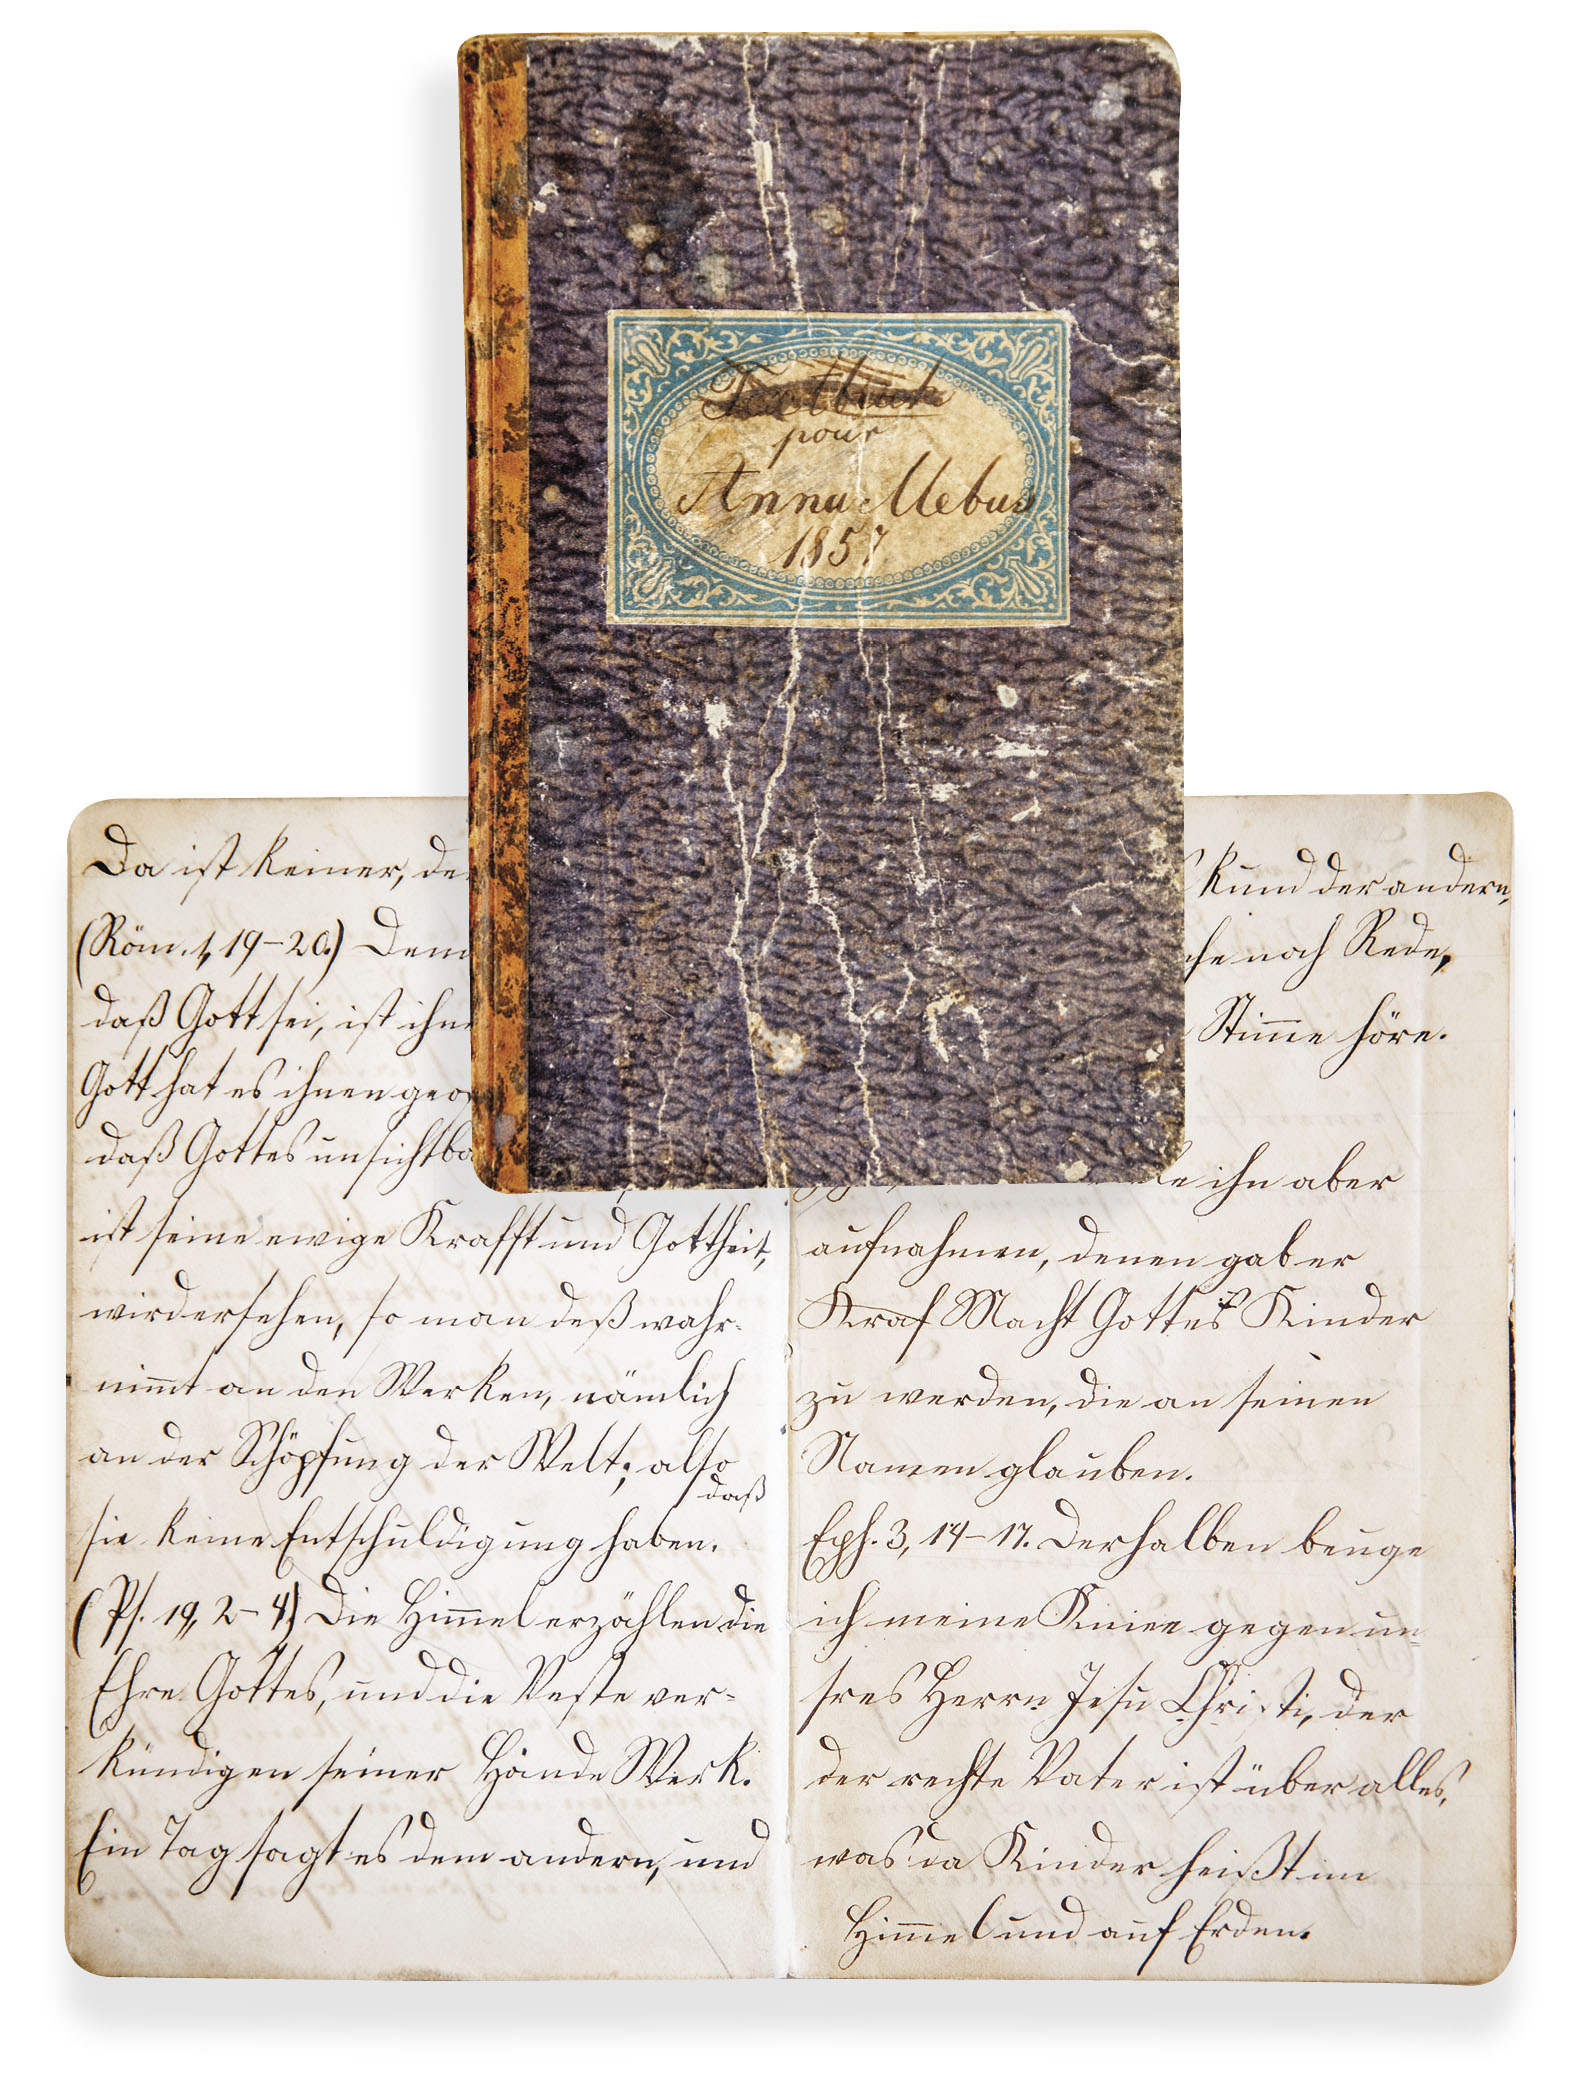 Textbuch
pour
Anna Mebus
1857
Da ist keiner, de
(Röm. 1, 19–20.) Dem
daß Gott sei, ist ihne
Gott hat es ihnen geo
daß Gottes unsichtba
ist seine ewige Krafft und Gottheit,
wird ersehen, so man deß wahr-
nimmt an den Werken, nämlich
an der Schöpfung der Welt; also
daß
sie keine Entschuldigung haben.
(Ps. 19, 2–4) Die Himmel erzählen die
Ehre Gottes, und die Veste ver-
kündigen seiner Hände Werk.
Ein Tag sagt es dem andern, und
kund der andern,
che noch Rede,
Stimme höre.
le ihn aber
aufnahmen, denen gab er
Kraf Macht Gottes Kinder
zu werden, die an seinen
Namen glauben.
Eph. 3, 14–17. Derhalben beuge
ich meine Kniee gegen un-
sres Herrn Jesu Christi, der
der rechte Vater ist über alles,
was da Kinder heißt im
Himmel und auf Erden.